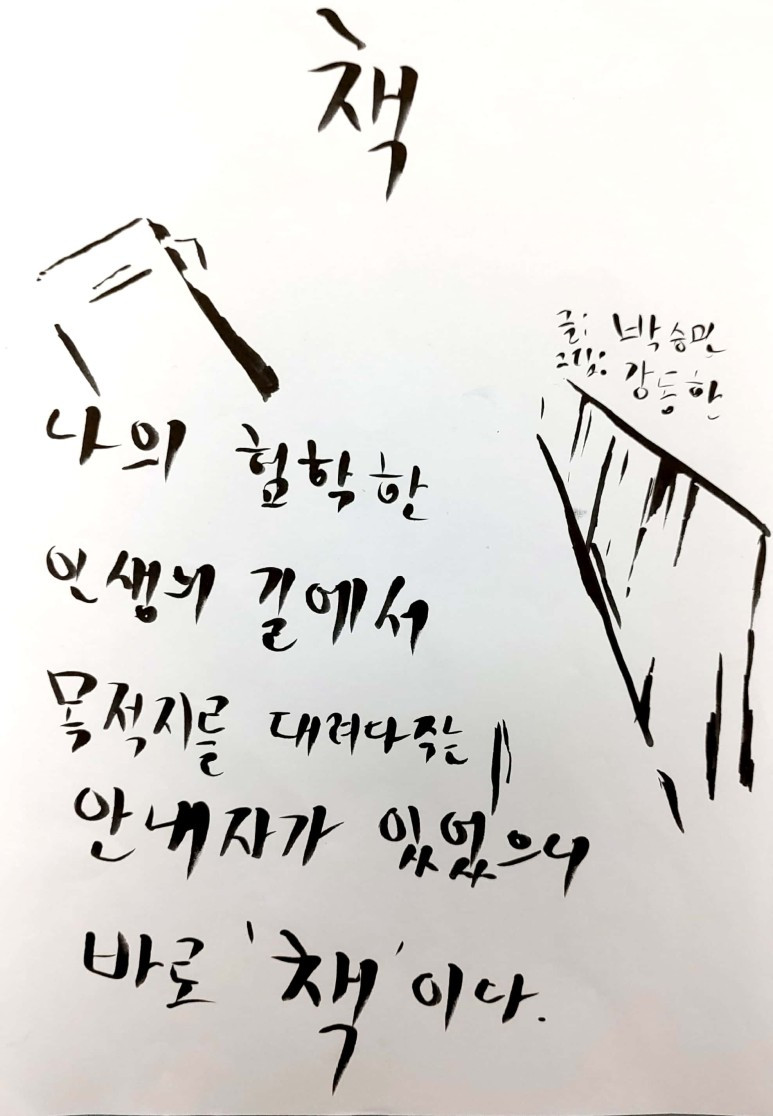 책
글: 박승민
그림: 강동한
나의 험학한
인생의 길에서
목적지를 대려다주는
안내자가 있었으니
바로 '책'이다.